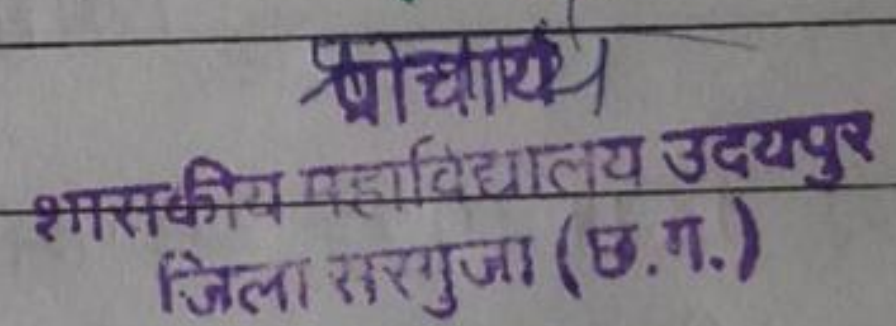 प्राचार्य
शासकीय महाविद्यालय उदयपुर
जिला सरगुजा (छ.ग.)